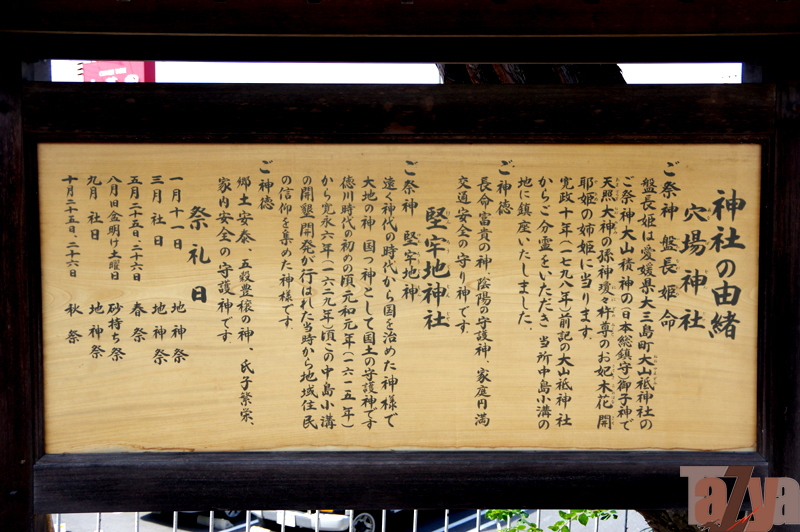 神社の由緒
穴場神社
ご祭神 盤長姫命
盤長姫は愛媛県大三島町大山祗神社の
ご祭神大山積神の(日本総鎮守)御子神で
天照大神の孫神瓊々杵尊のお妃木花開
耶姫の姉姫に当ります。
寛政十年(一七九八年)前記の大山祗神社
からご分霊をいただき当所中島小溝の
地に鎮座いたしました。
ご神徳
長命富貴の神、陰陽の守護神、家庭円満
交通安全の守り神です。
堅牢地神社
ご祭神 堅牢地神
遠く神代の時代から国を治めた神様で
大地の神、国つ神として国土の守護神です
徳川時代の初めの頃元和元年(一六一五年)
から寛永六年(一六二九年)頃この中島小溝
の開墾、開発が行はれた当時から地域住民
の信仰を集めた神様です。
ご神徳
郷土安泰、五穀豊穣の神、氏子繁栄、
家内安全の守護神です。
祭礼日
一月十一日 地神祭
三月社日 地神祭
五月二十五日、二十六日 春祭
八月旧盆明け土曜日 砂持ち祭
九月社日 地神祭
十月二十五日、二十六日 秋祭
TaZya